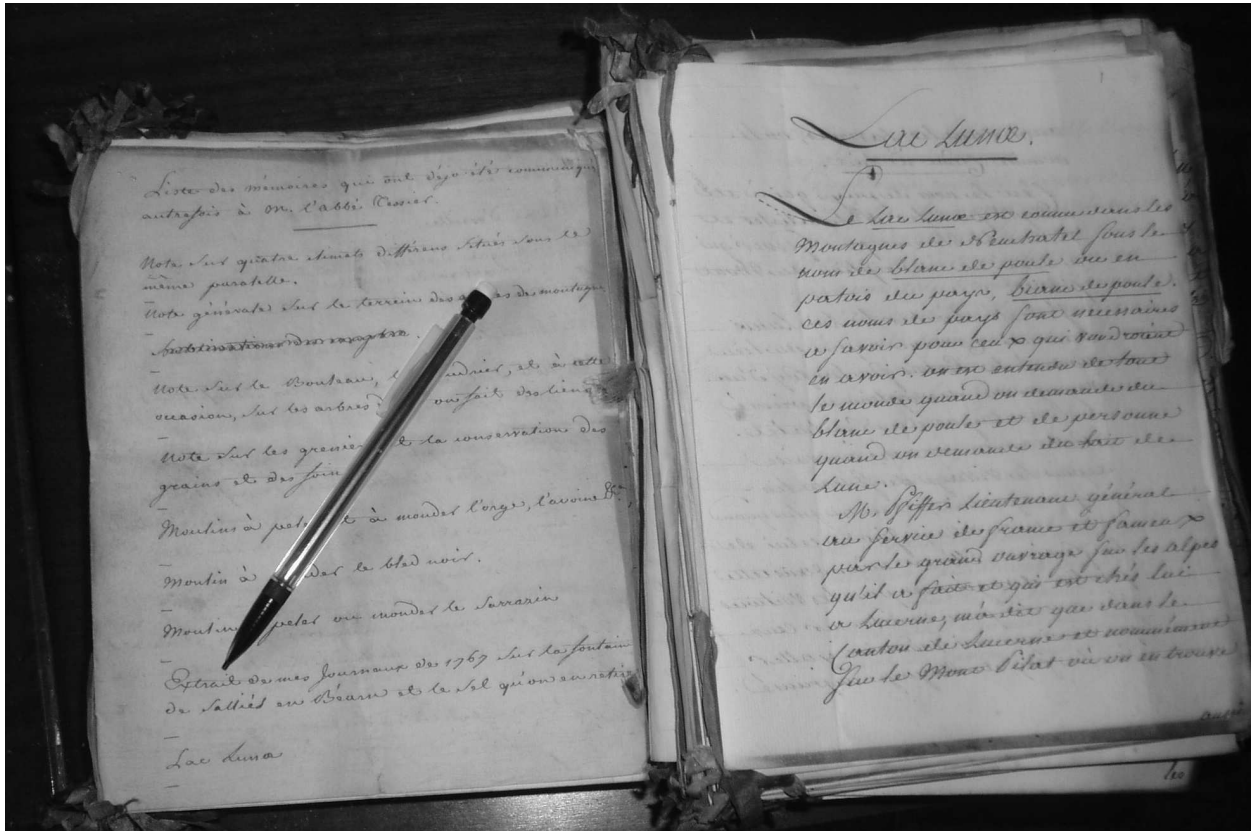 Liste des mémoires qui ont déjà été communiqu
autrefois à M. l'abbé Tessier.
Note sur quatre climats différens situés sous le
même paralelle.
Note générale sur le terrein des de montagne
Note sur le Bouleau, et à cette
ocasion, sur les arbres on fait des liens
Note sur les grenier et la conservation des
grains et des foin
Moulins à peler et à monder l'orge, l'avoine &c.
Moulin à monder le bled noir.
Moulin peler ou monder le Sarrazin
Extrait de mes Journaux de 1767 sur la fontain
de Salliés en Béarn et le sel qu'on en retire
Lac Lunæ
Lac Lunæ.
Le Lac Lunæ est connu dans les
Montagnes de Neuchatel sous le
nom de blanc de poule ou en
patois du pays, blianc de poule.
ces noms de pays sont nécessaires
a savoir pour ceux qui voudroient
en avoir. on est entendu de tout
le monde quand on demande du
blanc de poule et de personne
quand on demande du lait de
Lune.
M. Pfiffer Lieutenant général
au service de france et fameux
par le grand ouvrage sur les alpes
qu'il a fait et qui est chés lui
a Lucerne, m'a dit que dans le
Canton de Lucerne et nommément
sur le Mont Pilat où on en trouve
aussi